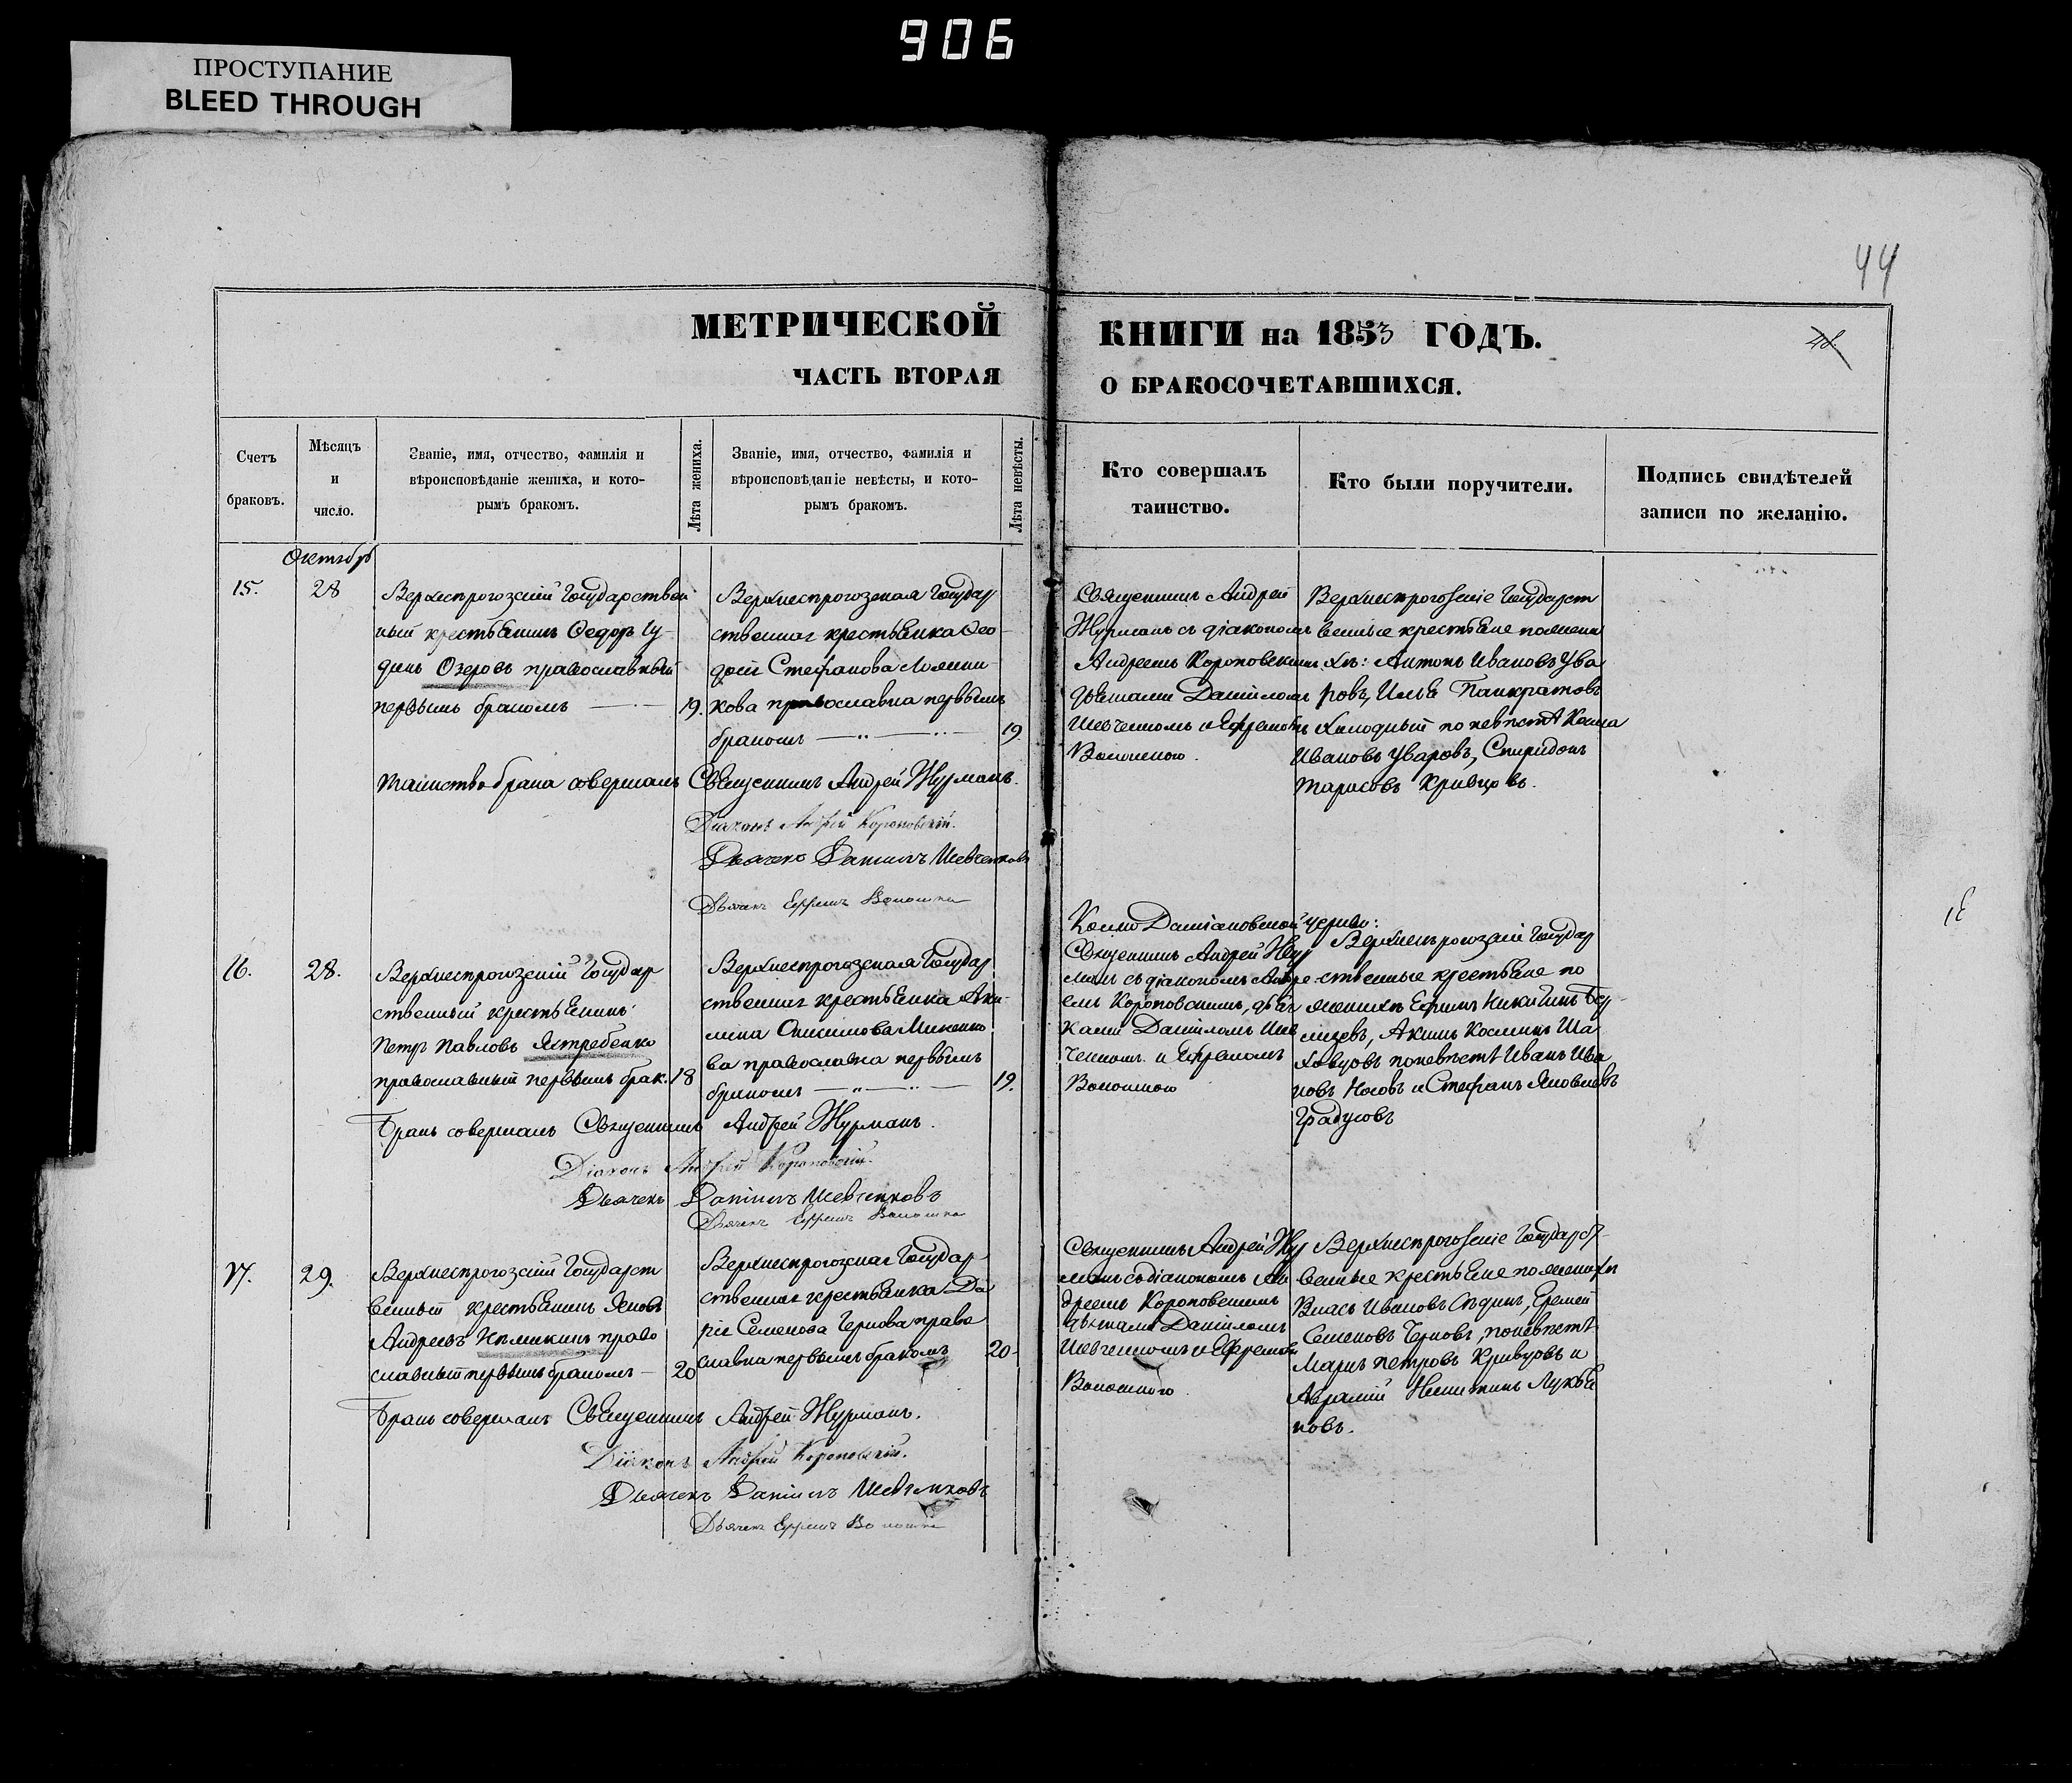 906
ПРОСТУПАНИЕ
BLEED THROUGH
44
МЕТРИЧЕСКОЙ
ЧАСТЬ ВТОРАЯ
КНИГИ на 1853 ГОДЪ.
О БРАКОСОЧЕТАВШИХСЯ.
Счетъ
браковъ.
Мѣсяцъ
и
число.
Званіе, имя, отчество, фамилія и
вѣроисповѣданіе жениха, и кото-
рымъ бракомъ.
Лѣта жениха.
Званіе, имя, отчество, фамилія и
вѣроисповѣданіе невѣсты, и кото-
рымъ бракомъ.
Лѣта невѣсты.
Кто совершалъ
таинство.
Кто были поручители.
Подпись свидѣтелей
записи по желанію.
Октябр
15.
28
Верхнепрогозскій Государствен
ный крестьянинъ Федоръ
Озеровъ православный
первымъ бракомъ
19.
Верхнепрогозская Государ
ственная крестьянка Фео
Стефанова
кова православна первымъ
бракомъ
19
Священникъ Андрей
Журманъ съ діакономъ
Андреемъ Короповскимъ
Даніиломъ
Шевченкомъ и Ефремомъ
Волошкою.
Верхнепрогозскіе Государст
венные крестьяне по жени
хѣ: Антонъ Ивановъ Ува
ровъ, Илья Панкратовъ
Холодный по невѣстѣ Козма
Ивановъ Уваровъ, Спиридонъ
Тарасовъ Кривцовъ.
Таинство брака совершалъ Священникъ Андрей Журманъ.
Діаконъ Андрей Короповскій.
Дьячекъ Даніилъ Шевченковъ
Дьячекъ Ефремъ Волошка
Козмо Даміановской церкви:
16.
28.
Верхнепрогозскій Государ
ственный крестьянинъ
Петръ Павловъ Ястребенко
православный первымъ брак.
18
Верхнепрогозская Государ
ственная крестьянка Аку
лина
ва православна первымъ
бракомъ
19.
Священникъ Андрей Жур
манъ съ діакономъ Андре
емъ Короповскимъ, дьяч
ками Даніиломъ Шев
ченкомъ и Ефремомъ
Волошкою
Верхнепрогозскій Государ
ственные крестьяне по
женихѣ Ефимъ Никитинъ
Акимъ Козминъ Ша
ховцовъ по невѣстѣ Иванъ Ива
новъ Носовъ и Стефанъ Яковлевъ
Градусовъ
Бракъ совершалъ Священникъ Андрей Журманъ.
Діаконъ Андрей Короповскій.
Дьячекъ Даніилъ Шевченковъ
Дьячекъ Ефремъ Волошка
17.
29.
Верхнепрогозскій Государст
венный крестьянинъ Яковъ
Андреевъ право
славный первымъ бракомъ
20
Верхнепрогозская Государ
ственная крестьянка Да
рія Семенова Чернова право
славна первымъ бракомъ
20
Священникъ Андрей Жур
манъ съ діакономъ Ан
дреемъ Короповскимъ
дьячками Даніиломъ
Шевченкомъ и Ефремомъ
Волошкою
Верхнепрогозскіе Государст
венные крестьяне по женихѣ
Власъ Ивановъ Сѣдинъ, Еремей
Семеновъ Черновъ, по невѣстѣ
Маркъ Петровъ Кривцовъ и
Аврамій Никитинъ Лукья
новъ.
Бракъ совершалъ Священникъ Андрей Журманъ.
Діаконъ Андрей Короповскій.
Дьячекъ Даніилъ Шевченковъ
Дьячекъ Ефремъ Волошка